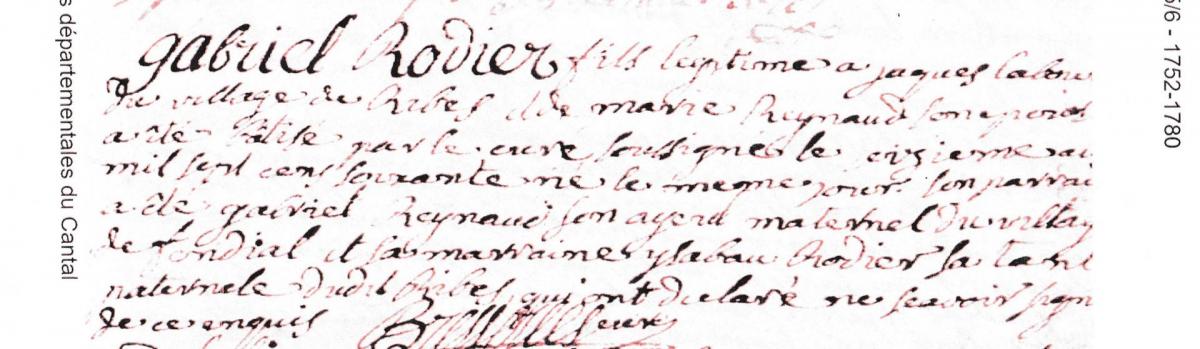 gabriel Rodier fils legitime a jaques labou
du village de Ribes et de marie Reynaud son epouse
a été batisé par le curé soussigné le sizieme
mil sept cens soixante né le meme jour son parrai
a été gabriel Reynaud son ayeul maternel du villag
de fondial et sa marraine ysabau Rodier sa tant
maternele dudit Ribes qui ont declaré ne scavoir sign
de ce enquis curé
s départementales du Cantal
5/6 - 1752-1780